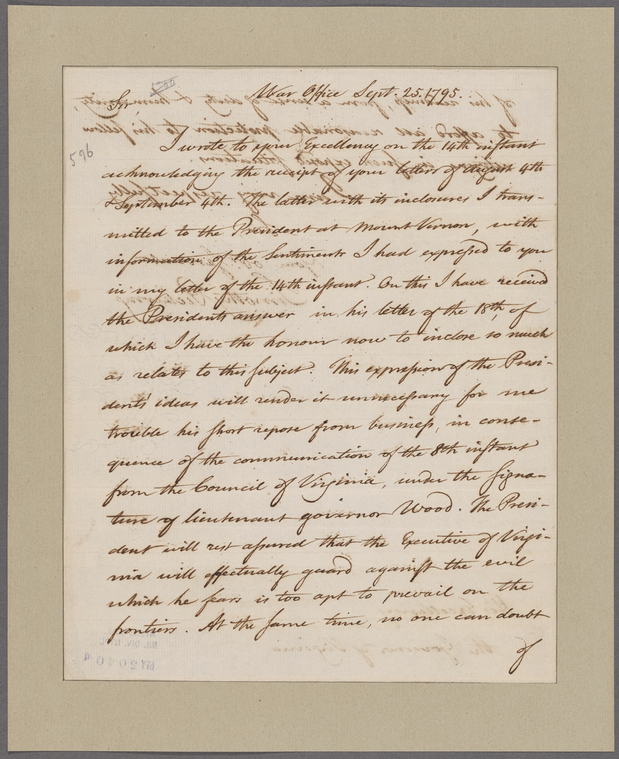 War Office Sept. 25. 1795.
Sir
596
I wrote to your Excellency on the 14th instant
acknowledging the receipt of your letters of August 4th
& September 4th. The latter with its inclosures I trans-
mitted to the President at Mount Vernon, with
information of the Sentiments I had expressed to you
in my letter of the 14th instant. On this I have received
the Presidents answer in his letter of the 18th, of
which I have the honour now to inclose so much
as relates to this subject. This expression of the Presi-
dents' ideas will render it unnecessary for me
trouble his short repose from business, in conse-
quence of the communication of the 8th instant
from the Council of Virginia, under the signa-
ture of lieutenant governor Wood. The Presi-
dent will rest assured that the Executive of Virgi-
nia will effectually guard against the evil
which he fears is too apt to prevail on the
frontiers. At the same time, no one can doubt
of